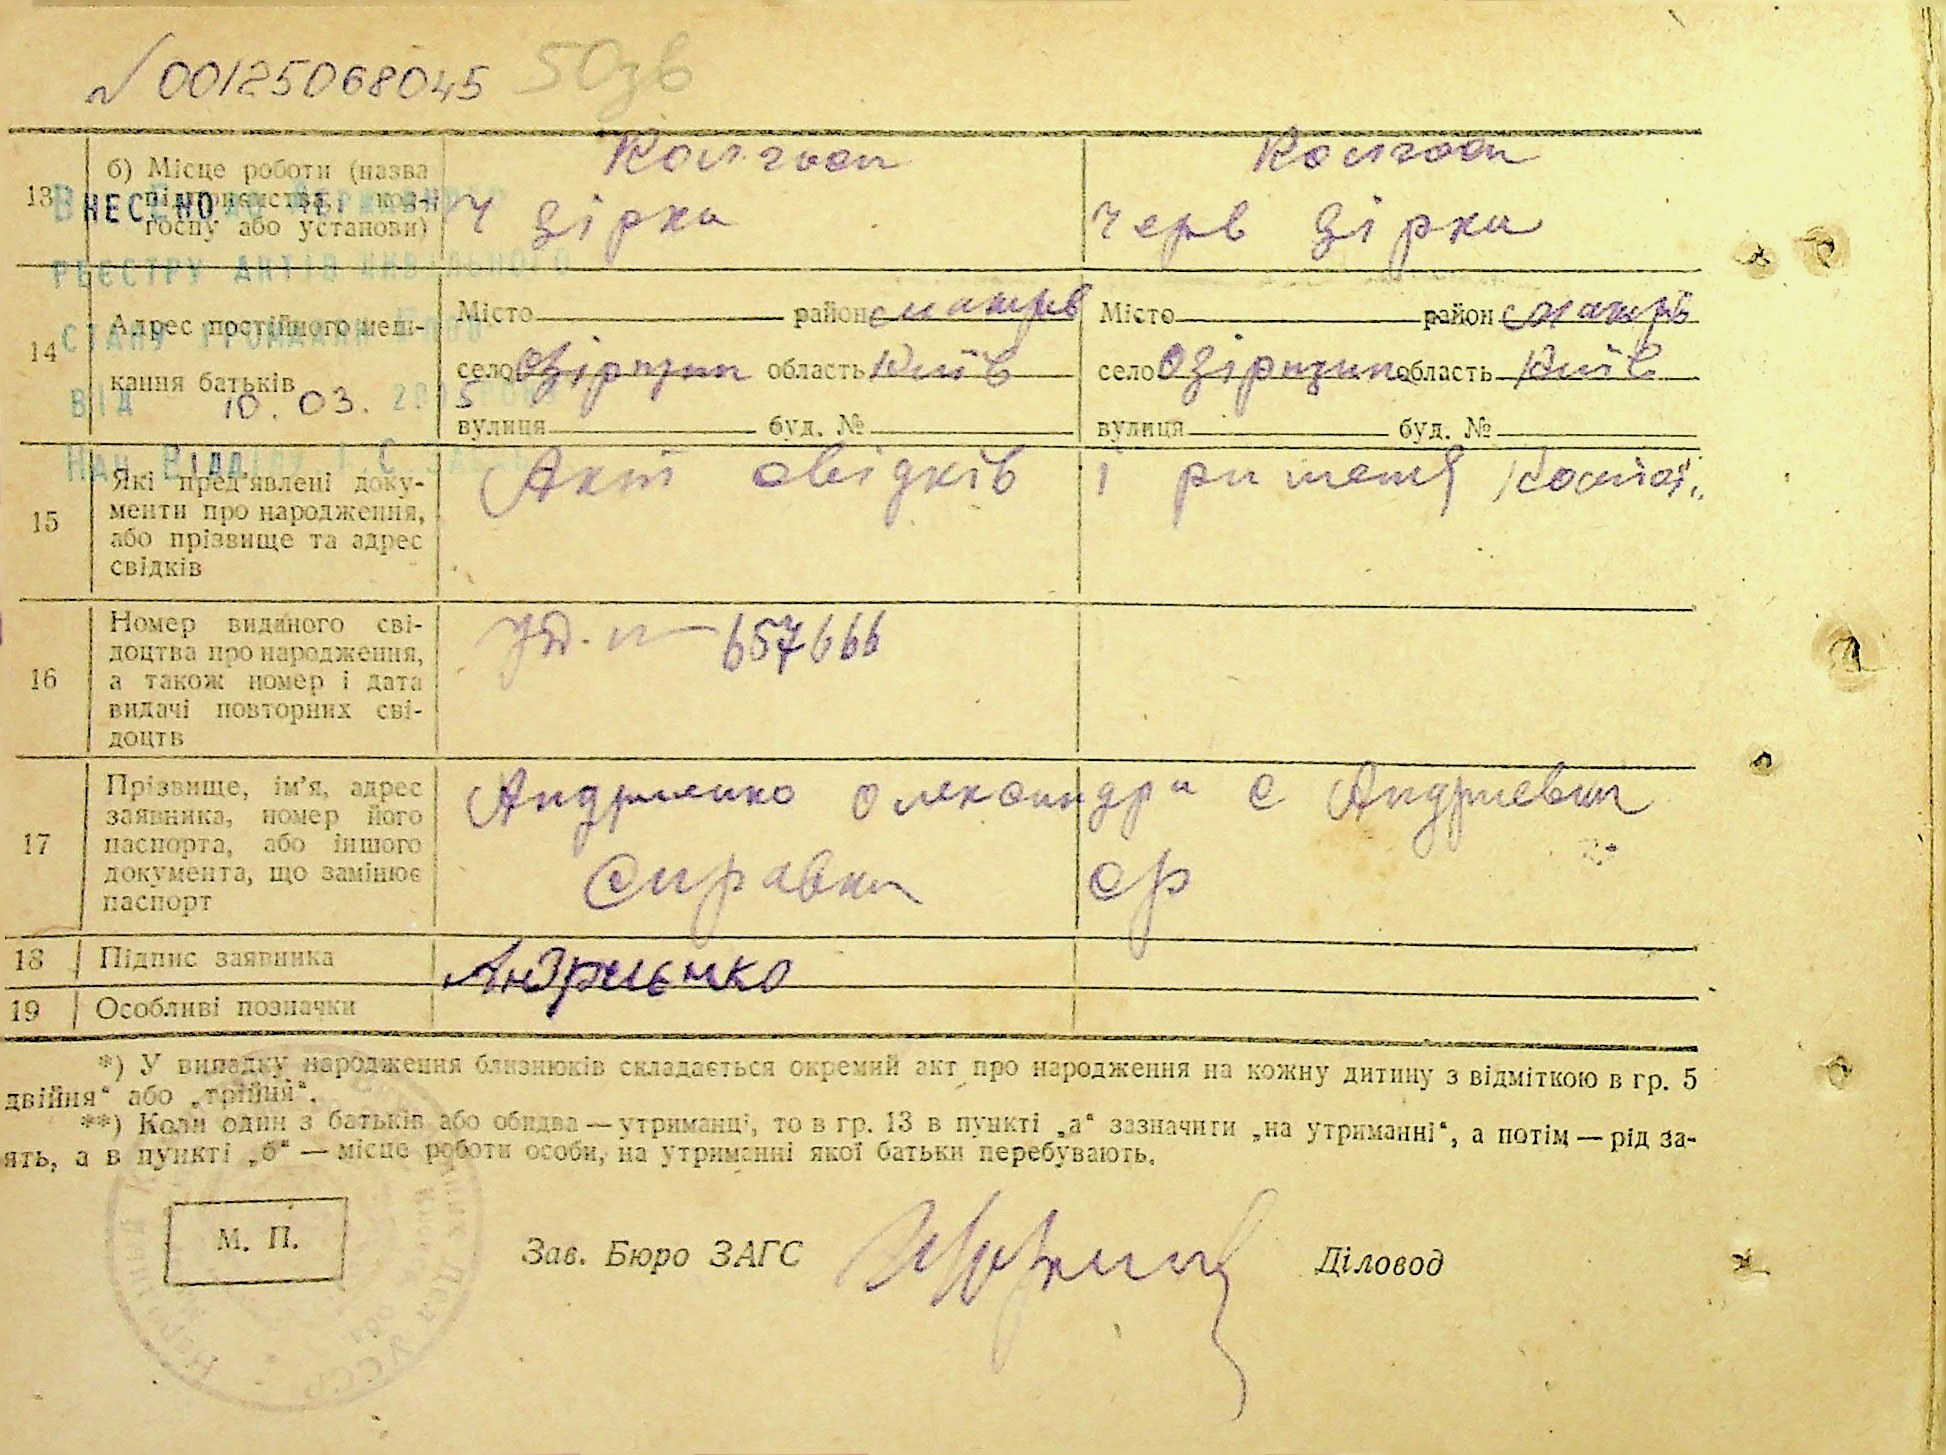 № 00125068045 50зв
13
б) Місце роботи (назва підприємства, кол-госпу або установи)
Колгосп
Ч Зірка
Колгосп
Черв Зірка
ВНЕСЕНО ДО ДЕРЖАВНОГО
РЕЄСТРУ АКТІВ ЦИВІЛЬНОГО
СТАНУ ГРОМАДЯН
ВІД 10.03. 2015
14
Адрес постійного меш-
кання батьків
Місто район
село область Київ
вулиця буд. №
Місто район
село область Київ
вулиця буд. №
15
Які пред'явлені доку-
менти про народження,
або прізвище та адрес
свідків
Акт свідків і
16
Номер виданого сві-
доцтва про народження,
а також номер і дата
видачі повторних сві-
доцтв
657666
17
Прізвище, ім'я, адрес
заявника, номер його
паспорта, або іншого
документа, що замінює
паспорт
Андрієнко Олександра с Андріевки
Справка ср
18 Підпис заявника
Андриенко
19 Особливі позначки
*) У випадку народження близнюків складається окремий акт про народження на кожну дитину з відміткою в гр. 5
двійня" або „трійня".
**) Коли один з батьків або обидва — утриманці, то в гр. 13 в пункті „а" зазначити „на утриманні", а потім — рід за-
ять, а в пункті „б" — місце роботи особи, на утриманні якої батьки перебувають.
М. П.
Зав. Бюро ЗАГС
Діловод